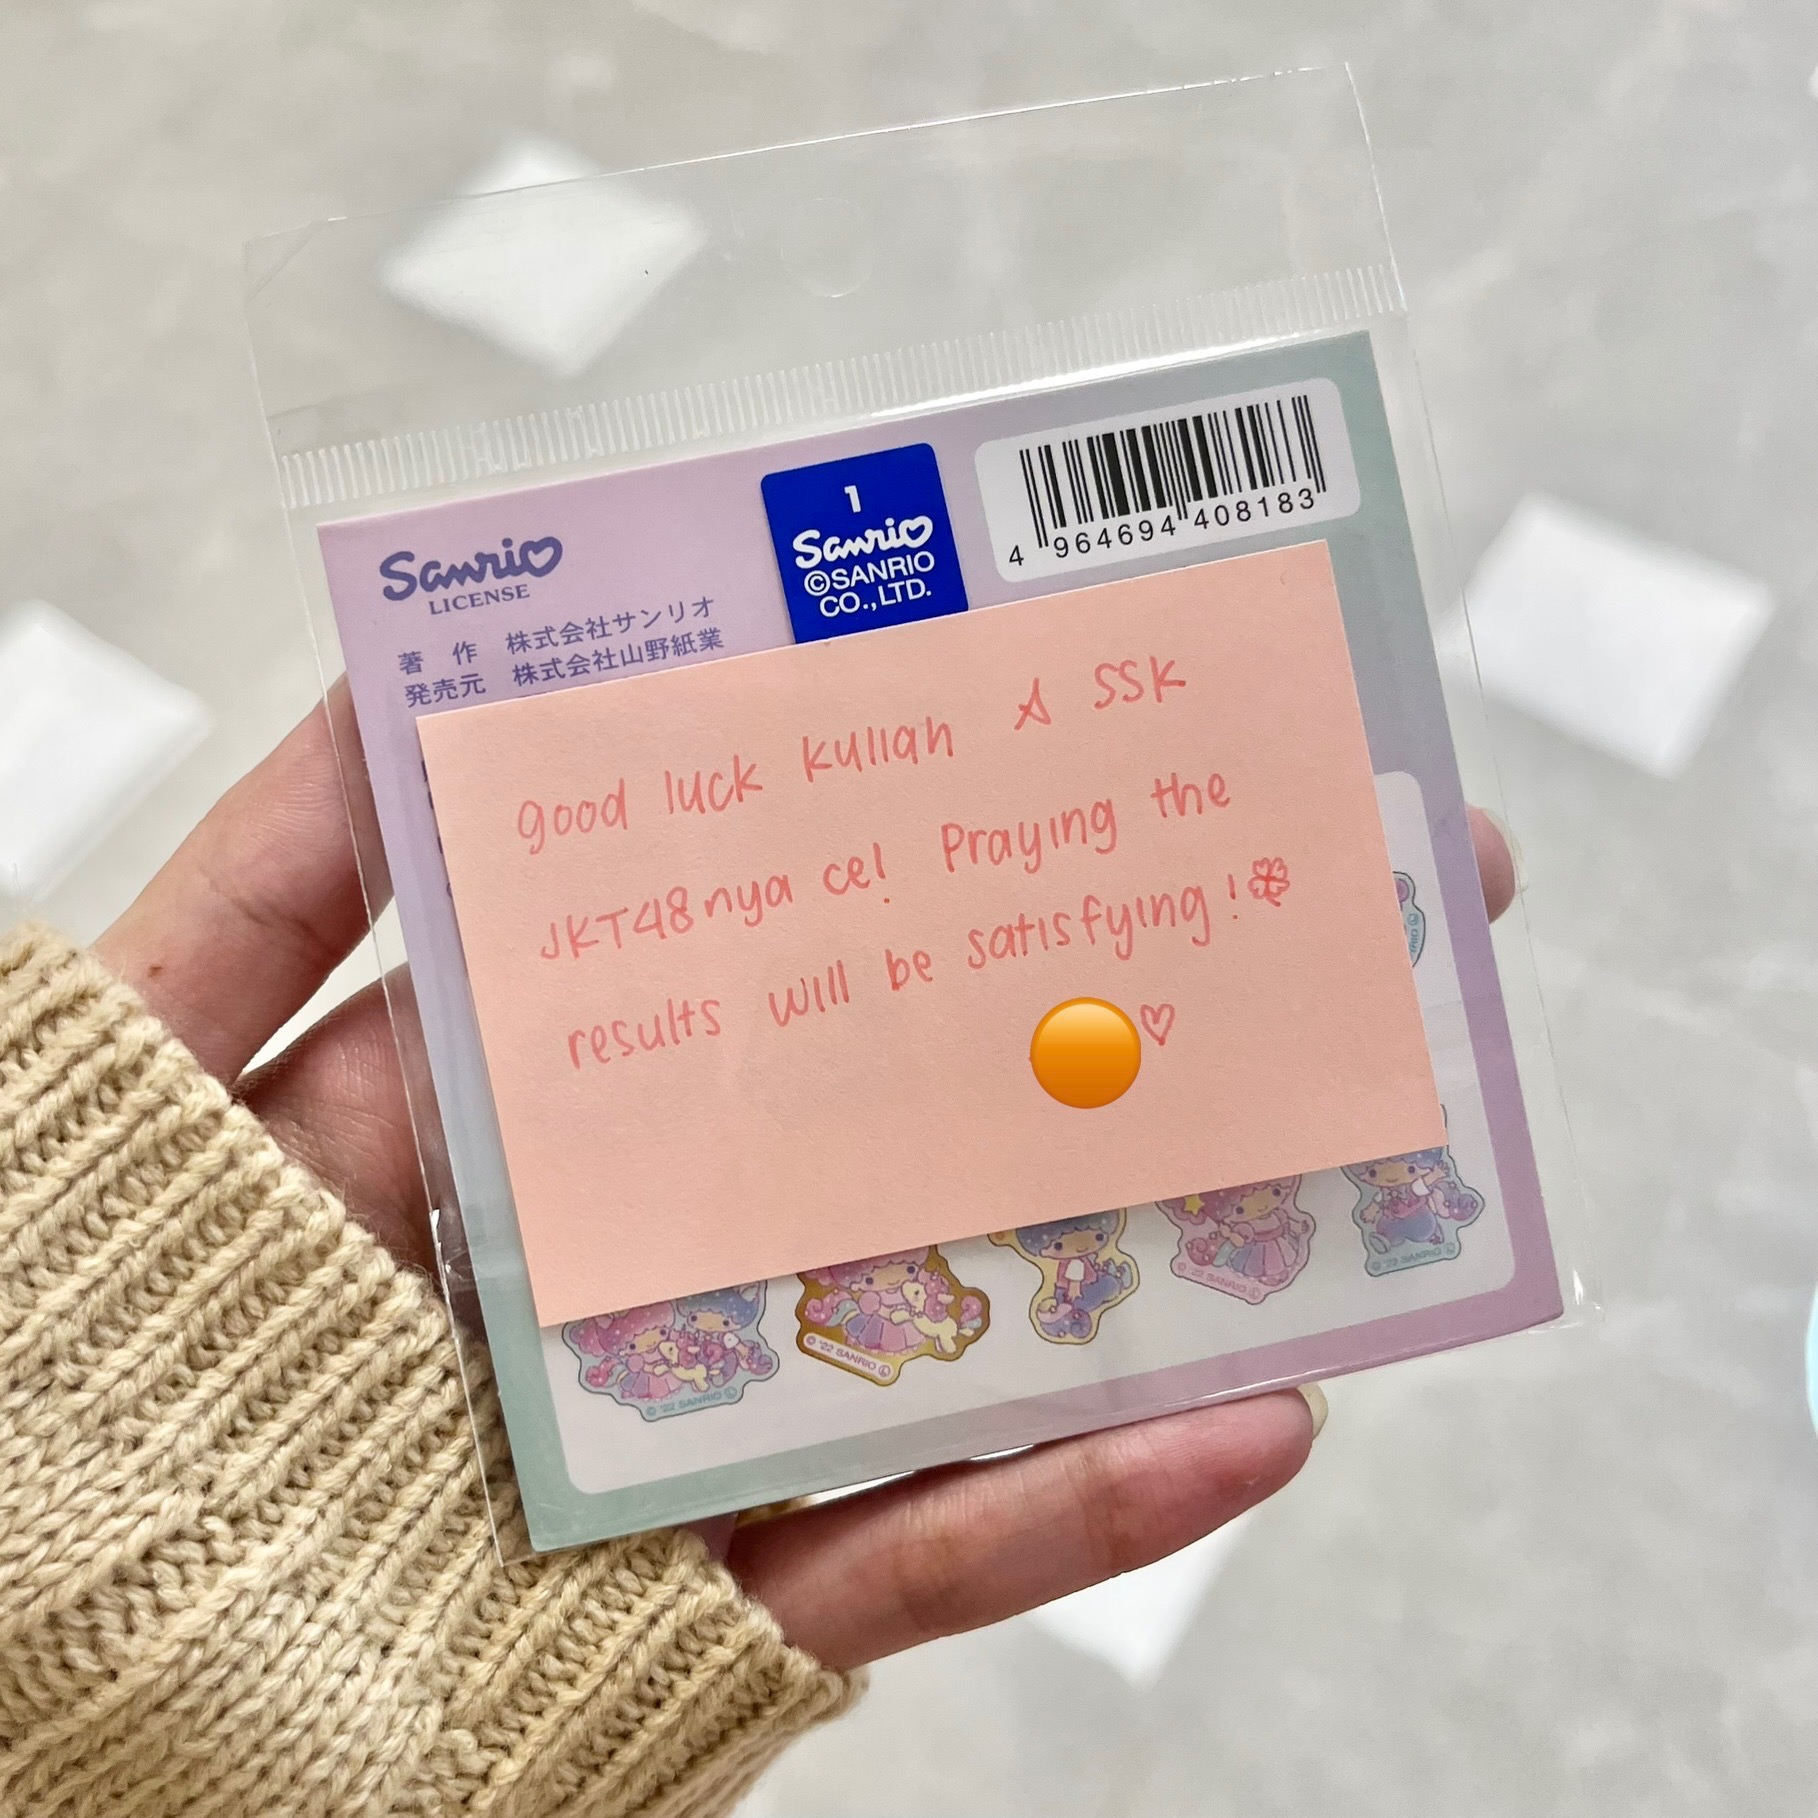 Sanrio
LICENSE
著 作 株式会社サンリオ
発売元 株式会社山野紙業
1
Sanrio
©SANRIO
CO.,LTD.
4 964694 408183
good luck kuliah & SSK
JKT48nya ce! Praying the
results will be satisfying!
© '22 SANRIO Ⓛ
© '22 SANRIO Ⓛ
© '22 SANRIO Ⓛ
© '22 SANRIO Ⓛ